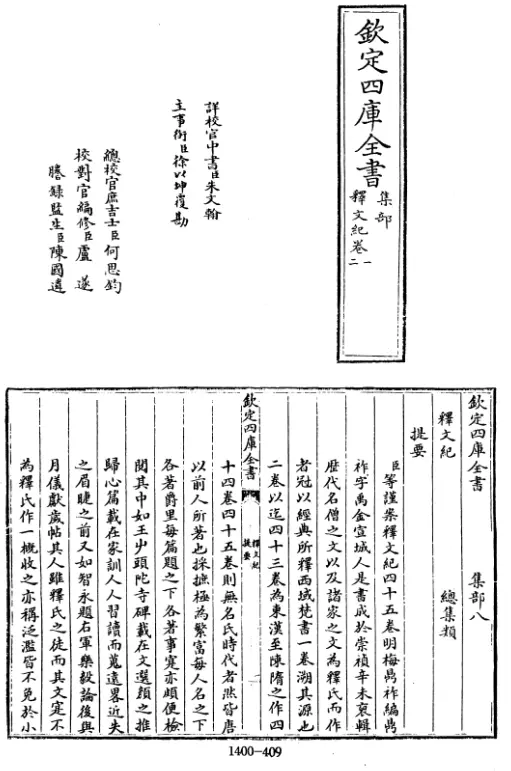 欽定四庫全書
集部
釋文紀卷一
二
詳校官中書臣朱文翰
主事銜臣徐以坤覆勘
總校官庶吉士臣何思鈞
校對官編修臣盧遂
謄錄監生臣陳國遺
欽定四庫全書 集部八
釋文紀 總集類
提要
臣等謹案釋文紀四十五卷明梅鼎祚編鼎
祚字禹金宣城人是書成於崇禎辛未裒輯
歷代名僧之文以及諸家之文為釋氏而作
者冠以經典所釋西域梵書一卷溯其源也
二卷以迄四十三卷為東漢至陳隋之作四
欽定四庫全書 釋文紀 提要 一
十四卷四十五卷則無名氏時代者然皆唐
以前人所著也採摭極為繁富每人名之下
各著爵里每篇題之下各著事實亦頗便檢
閱其中如王屮頭陀寺碑載在文選顏之推
歸心篇載在家訓人人習讀而蒐遠畧近失
之眉睫之前又如智永題右軍樂毅論後與
月儀獻歲帖其人雖釋氏之徒而其文寔不
為釋氏作一概收之亦稱泛濫皆不免於小
1400-409